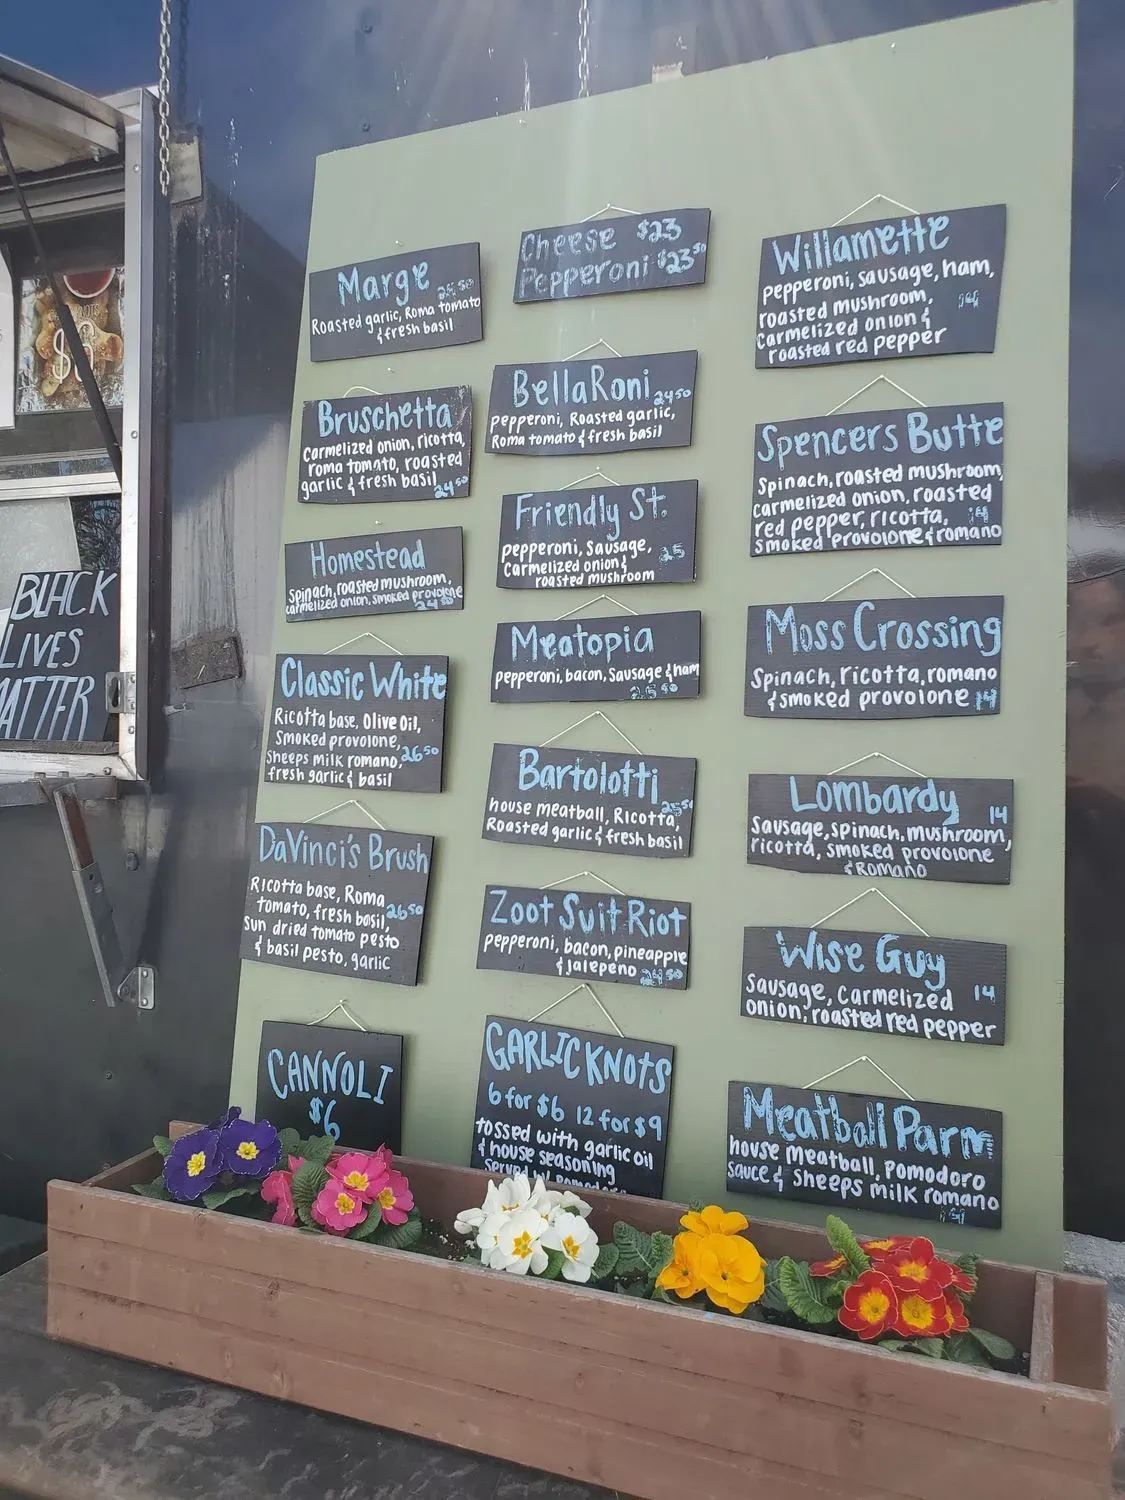 BLACK
LIVES
MATTER
Marge
Roasted garlic, Roma tomato
& fresh basil
Bruschetta
Carmelized onion, ricotta,
roma tomato, roasted
garlic & fresh basil 24 50
Homestead
Spinach, roasted mushroom,
carmelized onion, smoked provolone
24 50
Classic White
Ricotta base, Olive Oil,
Smoked provolone,
Sheeps milk romano, 26 50
fresh garlic & basil
DaVinci's Brush
Ricotta base, Roma
tomato, fresh basil, 26 50
sun dried tomato pesto
& basil pesto, garlic
CANNOLI
$6
Cheese $23
Pepperoni $23 50
BellaRoni 24 50
pepperoni, Roasted garlic,
Roma tomato & fresh basil
Friendly St.
pepperoni, Sausage, 25
Carmelized onion &
roasted mushroom
Meatopia
pepperoni, bacon, Sausage & ham
Bartolotti
house meatball, Ricotta, 25 50
Roasted garlic & fresh basil
Zoot Suit Riot
pepperoni, bacon, pineapple
& jalepeno 24 50
GARLIC KNOTS
6 for $6 12 for $9
tossed with garlic oil
& house seasoning
served w/
Willamette
pepperoni, sausage, ham,
roasted mushroom, 14
Carmelized onion &
roasted red pepper
Spencers Butte
Spinach, roasted mushroom,
carmelized onion, roasted
red pepper, ricotta, 14
smoked provolone & romano
Moss Crossing
Spinach, ricotta, romano
& smoked provolone 14
Lombardy
14
Sausage, spinach, mushroom,
ricotta, smoked provolone
& Romano
Wise Guy
Sausage, Carmelized 14
onion, roasted red pepper
Meatball Parm
house meatball, Pomodoro
sauce & sheeps milk romano
14